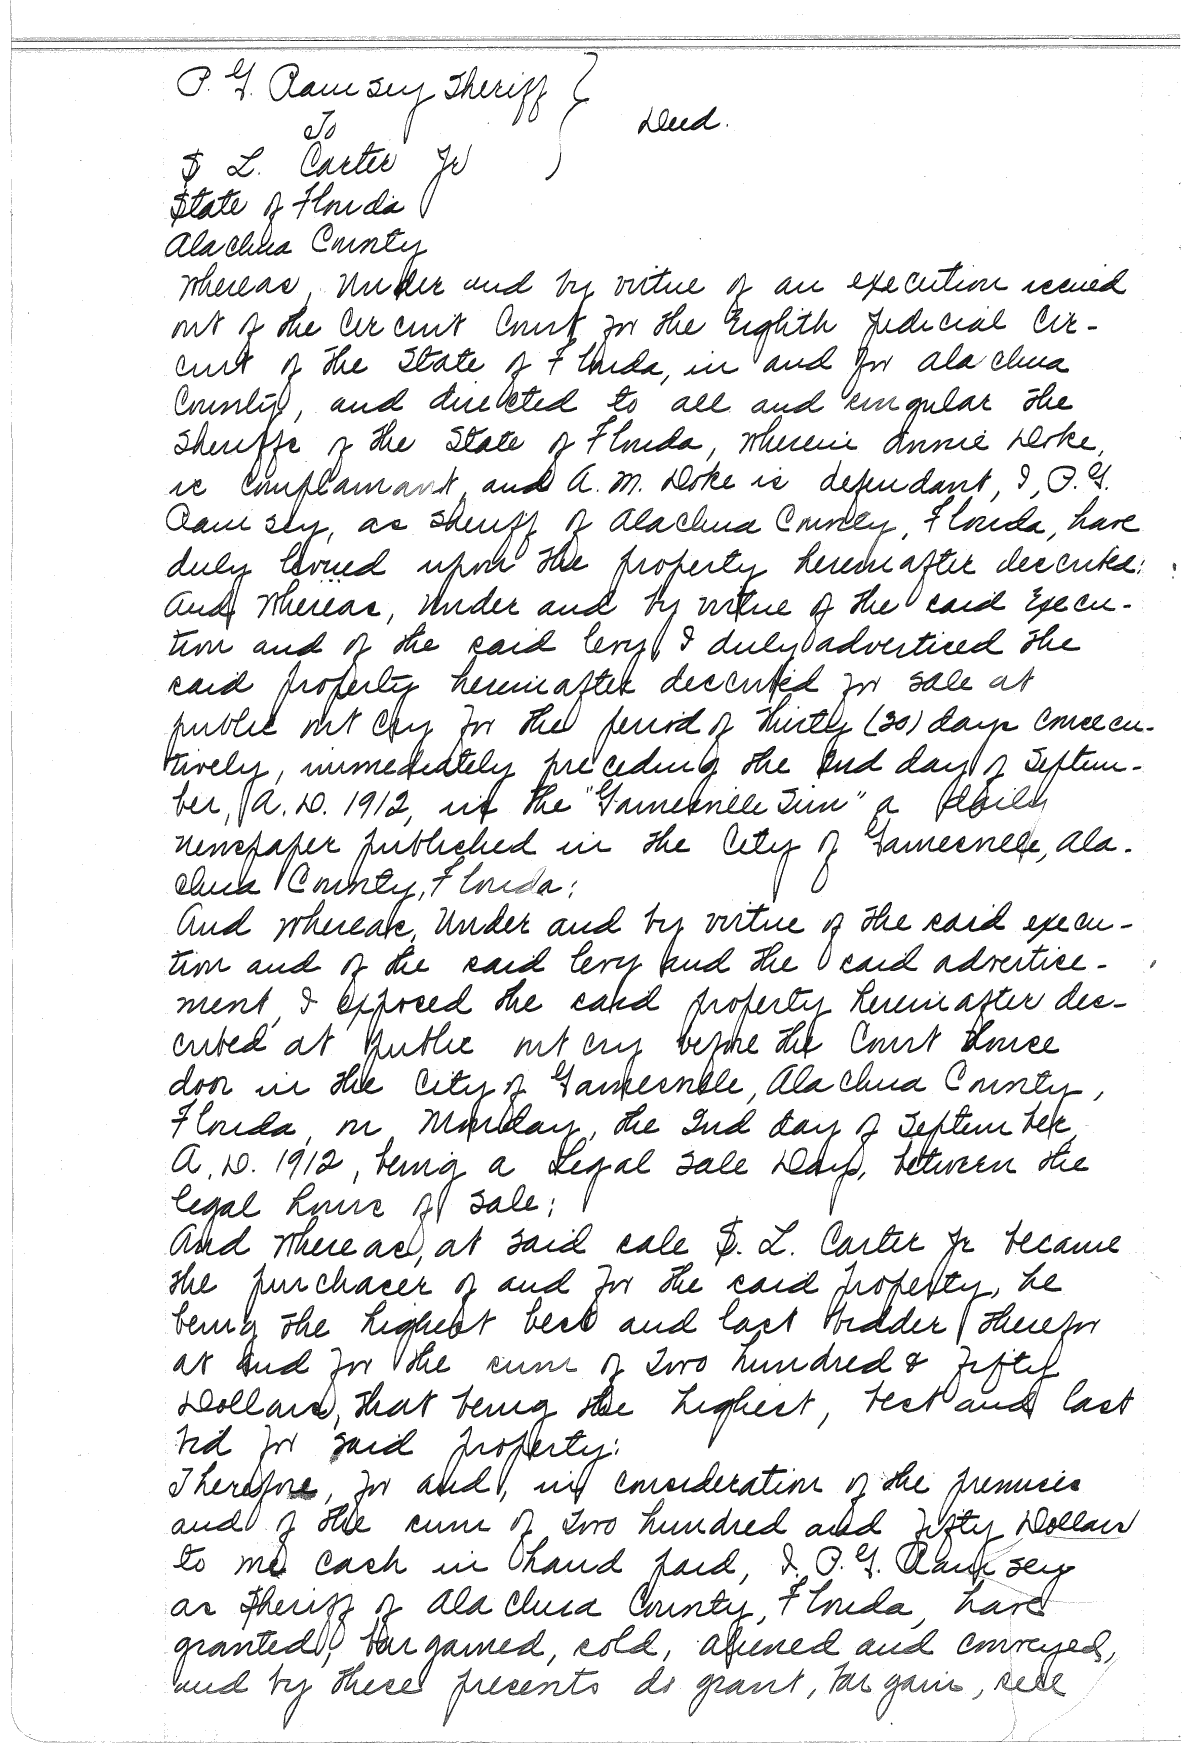 P. G. Ramsey Sheriff
To
Deed.
S L. Carter Jr
State of Florida
Alachua County
Whereas, Under and by virtue of an execution issued
out of the Circuit Court for the Eighth Judicial Cir-
cuit of the State of Florida, in and for Alachua
County, and directed to all and singular the
Sheriffs of the State of Florida, wherein Annie Doke,
is Complainant, and A. M. Doke is defendant, I, P. G.
Ramsey, as Sheriff of Alachua County, Florida, have
duly levied upon the property hereinafter described:
And Whereas, Under and by virtue of the said Execu-
tion and of the said levy, I duly advertised the
said property hereinafter described for sale at
public out cry for the period of thirty (30) days consecu-
tively, immediately preceding the 2nd day of Septem-
ber, A. D. 1912, in the "Gainesville Sun" a Daily
newspaper published in the City of Gainesville, Ala-
chua County, Florida;
And Whereas, Under and by virtue of the said execu-
tion and of the said levy and the said advertise-
ment, I exposed the said property hereinafter des-
cribed at public out cry before the Court House
door in the City of Gainesville, Alachua County,
Florida, on Monday, the 2nd day of September,
A. D. 1912, being a Legal Sale Day, between the
legal hours of sale;
And Whereas, at said sale S. L. Carter Jr became
the purchaser of and for the said property, he
being the highest best and last bidder therefor
at and for the sum of Two hundred & fifty
Dollars, that being the highest, best and last
bid for said property:
Therefore, for and, in consideration of the premises
and of the sum of Two hundred and fifty Dollars
to me cash in hand paid, I, P. G. Ramsey
as Sheriff of Alachua County, Florida, have
granted, bargained, sold, aliened and conveyed,
and by these presents do grant, bargain, sell